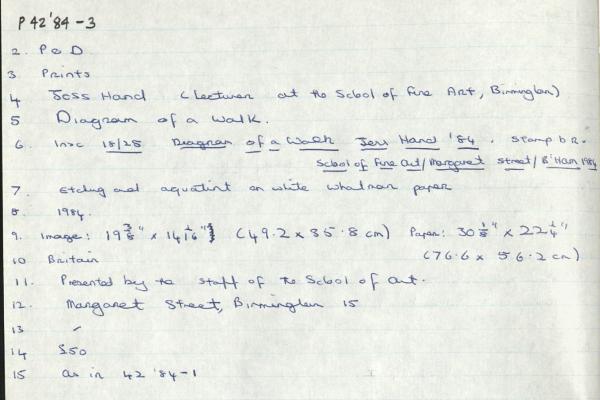 P 42'84-3
2. P & D
3 Prints
4 Joss Hand (Lecturer at the School of Fine Art, Birmingham)
5 Diagram of a Walk.
6. Insc 18/25 Diagram of a Walk Joss Hand '84. Stamp b R.
School of Fine Art/Margaret Street/B'Ham 1984
7. Etching and aquatint on white whatman paper
8. 1984.
9. Image: 19 3/8" x 14 1/16" (49.2 x 35.8 cm) Paper: 30 1/8" x 22 1/4"
(76.6 x 56.2 cm)
10 Britain
11. Presented by the staff of the School of Art.
12. Margaret Street, Birmingham 15
13 -
14 £50
15 as in 42 '84-1